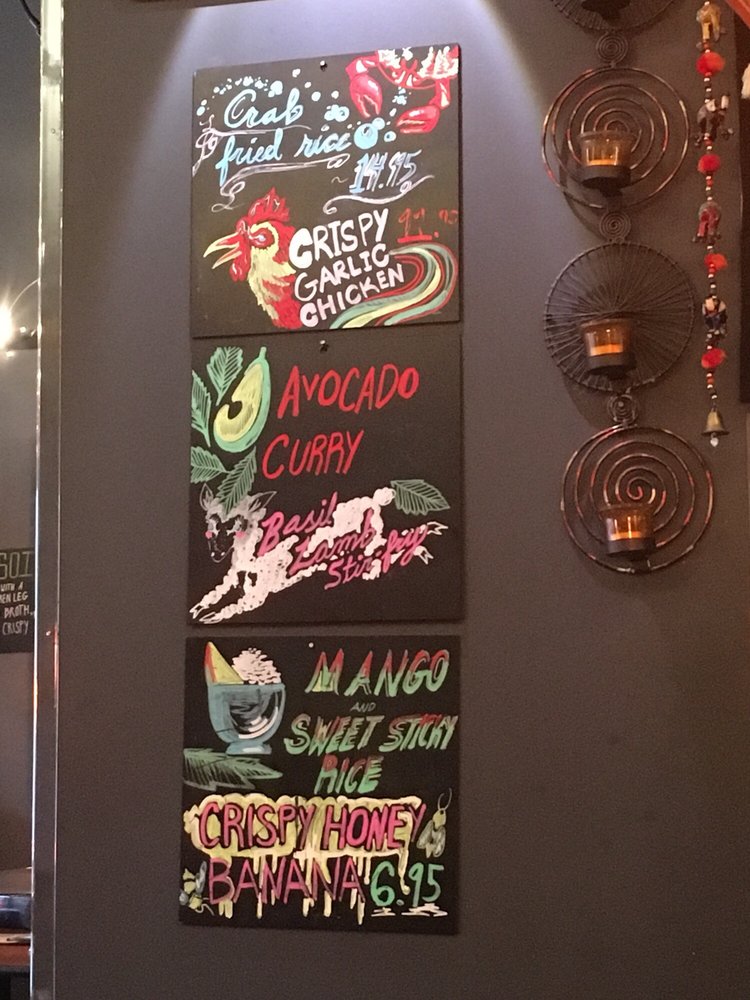 Crab
fried rice
14.95
CRISPY
GARLIC
CHICKEN
AVOCADO
CURRY
Basil
Lamb
Stir fry
MANGO
AND
SWEET STICKY
RICE
CRISPY HONEY
BANANA 6.95
SOI
WITH A
LEG
BROTH,
CRISPY